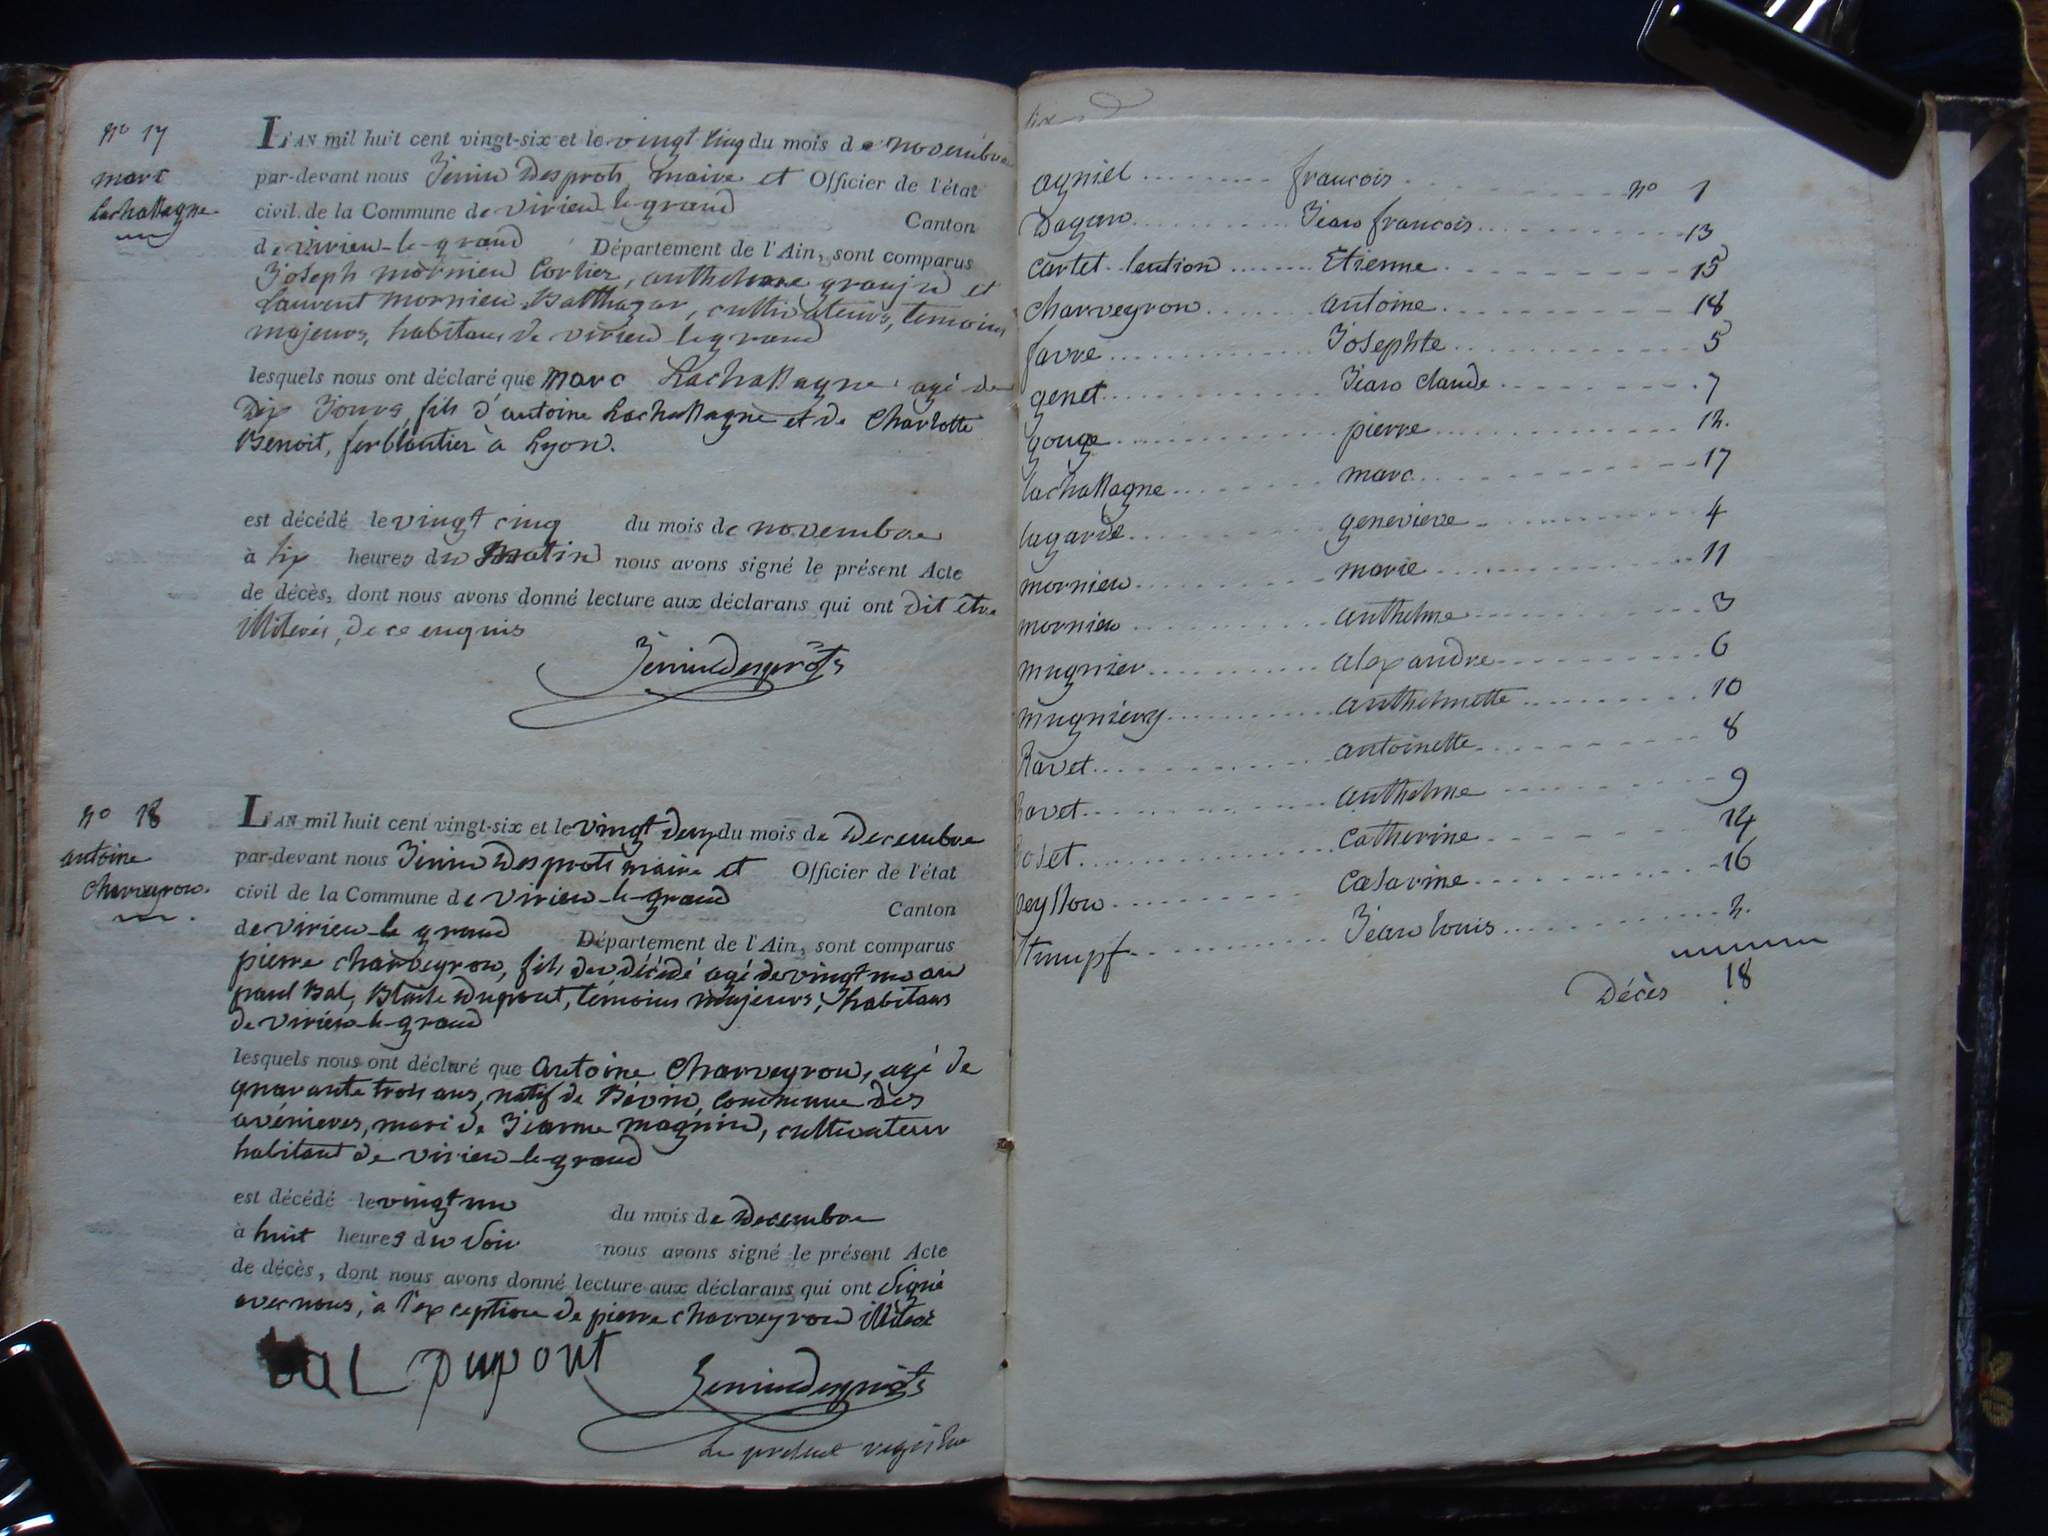 nº 17
marc
Lachassagne
L'AN mil huit cent vingt-six et le vingt cinq du mois de novembre
par-devant nous Jenin Desprots maire et Officier de l'état
civil de la Commune de virieu le grand
Canton
de virieu-le-grand Département de l'Ain, sont comparus
Joseph mornieu Cortier, anthelme granjid et
Laurent mornieu Balthazar, cultivateurs, temoins
majeurs, habitans de virieu le grand
lesquels nous ont déclaré que marc Lachassagne agé de
Dix Jours, fils d'antoine Lachassagne et de Charlotte
Benoit, ferblantier à Lyon.
est décédé le vingt cinq du mois de novembre
à six heures du matin nous avons signé le présent Acte
de décès, dont nous avons donné lecture aux déclarans qui ont dit être
illiterés, de ce enquis
JeninDesprots
nº 18
antoine
Charveyron.
L'AN mil huit cent vingt-six et le vingt deux du mois de Decembre
par-devant nous Jenin Desprots maire et Officier de l'état
civil de la Commune de virieu-le-grand
Canton
de virieu-le grand Département de l'Ain, sont comparus
pierre charveyron, fils du décédé agé de vingt un an
paul Bal, Blaise Dupont, témoins majeurs, habitans
de virieu-le-grand
lesquels nous ont déclaré que antoine Charveyron, agé de
quarante trois ans, natif de Bévin, commune des
avénieres, mari de Jeanne magnin, cultivateur
habitant de virieu-le-grand
est décédé le vingt un du mois de Decembre
à huit heures du soir nous avons signé le présent Acte
de décès, dont nous avons donné lecture aux déclarans qui ont signé
avec nous, à l'exception de pierre charveyron illiteré
bal Dupont JeninDesprots
Le present registre
agniel francois nº 1
Dagan Jean francois 13
cartet-lention Etienne 15
charveyron antoine 18
favre Josephte 5
genet Jean claude 7
gouge pierre 12.
lachassagne marc 17
lagarde genevieve 4
mornieu marie 11
mornieu anthelme 3
mugnier alexandre 6
mugniery anthelmette 10
Ravet antoinette 8
Ravet anthelme 9
Roset catherine 14
veyssou Cesarine 16
Stumpf Jean louis 2.
Décès 18